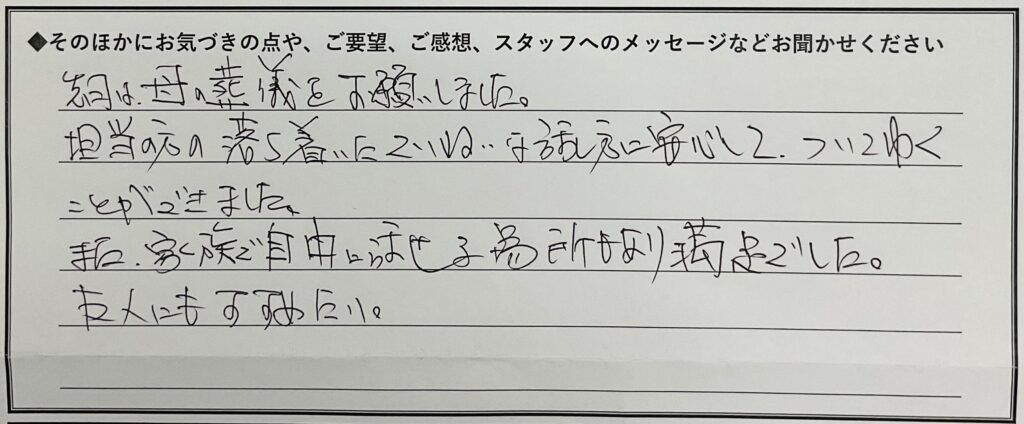 ◆そのほかにお気づきの点や、ご要望、ご感想、スタッフへのメッセージなどお聞かせください
先日は、母の葬儀をお願いしました。
担当の方の落ち着いたていねいな話し方に安心して、ついてゆく
ことができました。
また、家族で自由に話せる場所もあり満足でした。
友人にもすすめたい。